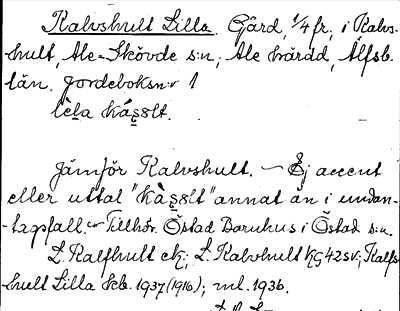 Kalvshult Lilla. Gård, 1/4 fr, i Kalvs-
hult, Ale-Skövde s:n, Ale härad, Älfsb.
län. Jordeboksnr 1
lèla kás̱olt.
Jämför Kalvshult. — Ej accent
eller uttal "kàs̱olt" annat än i undan-
tagsfall. Tillhör Östad Barnhus i Östad s:n.
L. Kalfhult ek; L. Kalvhult KG42SV; Kalfs-
hult Lilla kb. 1937 (1916); ml. 1936.